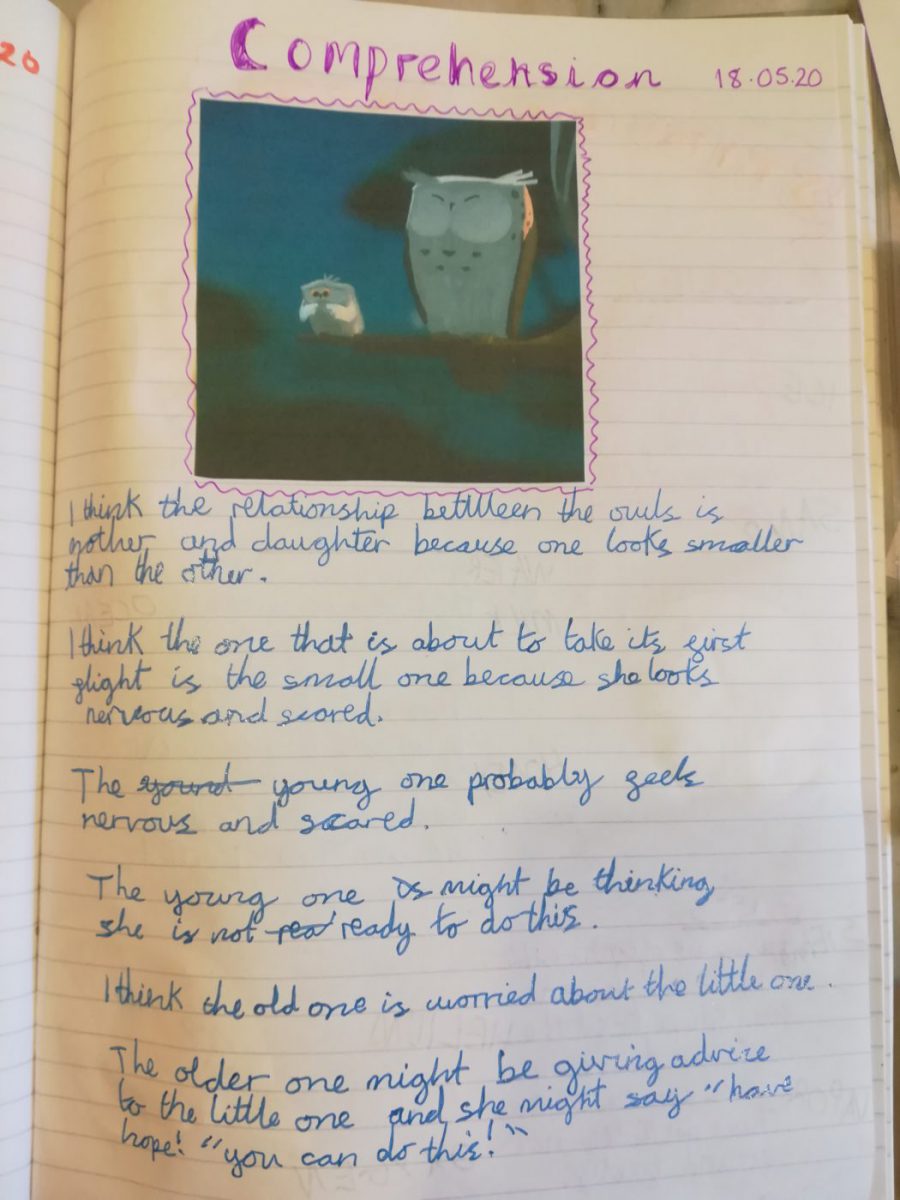 20
Comprehension 18.05.20
I think the relationship between the owls is
mother and daughter because one looks smaller
than the other.
I think the one that is about to take its first
flight is the small one because she looks
nervous and scared.
The yound young one probably feels
nervous and scared.
The young one is might be thinking
she is not rea ready to do this.
I think the old one is worried about the little one.
The older one might be giving advice
to the little one and she might say "have
hope! "you can do this!"